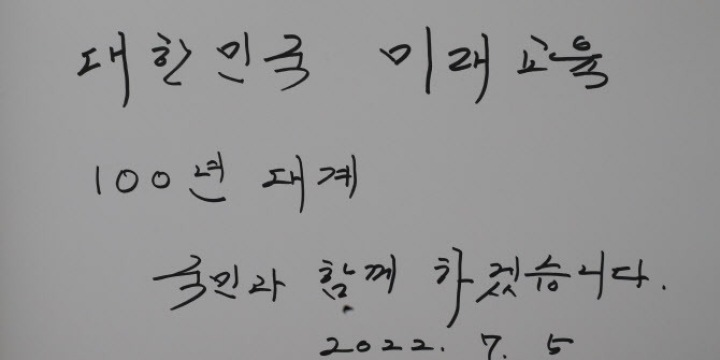 대한민국 미래교육
100년 대계
국민과 함께 하겠습니다.
2022. 7. 5